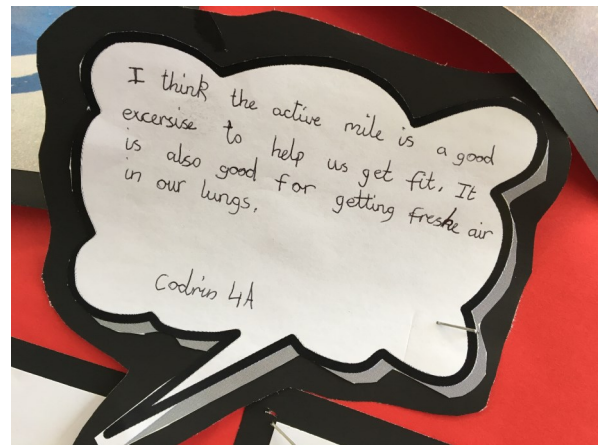 I think the active mile is a good
excersise to help us get fit. It
is also good for getting freshe air
in our lungs.
Codrin 4A